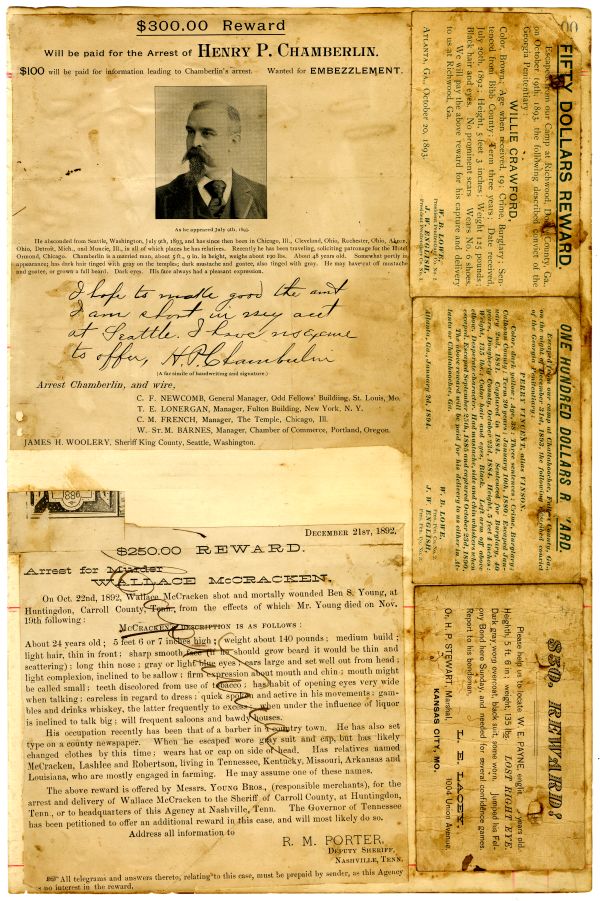 $300.00 Reward
Will be paid for the Arrest of HENRY P. CHAMBERLIN.
$100 will be paid for information leading to Chamberlin's arrest. Wanted for EMBEZZLEMENT.
As he appeared July 9th, 1893.
He absconded from Seattle, Washington, July 9th, 1893, and has since then been in Chicago, Ill., Cleveland, Ohio, Rochester, Ohio, Alger,
Ohio, Detroit, Mich., and Muncie, Ill., in all of which places he has relatives. Recently he has been traveling, soliciting patronage for the Hotel
Ormond, Chicago. Chamberlin is a married man, about 5 ft., 9 in. in height, weighs about 190 lbs. About 48 years old. Somewhat portly in
appearance; has dark hair tinged with gray on the temples; dark mustache and goatee, also tinged with gray. He may have cut off mustache
and goatee, or grown a full beard. Dark eyes. His face always had a pleasant expression.
I hope to make good the amt
I am short in my acct
at Seattle. I have no excuse
to offer, H P Chamberlin
(A fac simile of handwriting and signature.)
Arrest Chamberlin, and wire,
C. F. NEWCOMB, General Manager, Odd Fellows' Building, St. Louis, Mo.
T. E. LONERGAN, Manager, Fulton Building, New York, N. Y.
C. M. FRENCH, Manager, The Temple, Chicago, Ill.
W. ST. M. BARNES, Manager, Chamber of Commerce, Portland, Oregon.
JAMES H. WOOLERY, Sheriff King County, Seattle, Washington.
DECEMBER 21ST, 1892.
$250.00 REWARD.
Arrest for Murder
WALLACE McCRACKEN
On Oct. 22nd, 1892, Wallace McCracken shot and mortally wounded Ben S. Young, at
Huntingdon, Carroll County, Tenn., from the effects of which Mr. Young died on Nov.
19th following:
MCCRACKEN'S DESCRIPTION IS AS FOLLOWS:
About 24 years old; 5 feet 6 or 7 inches high; weight about 140 pounds; medium build;
light hair, thin in front; sharp smooth face (if he should grow beard it would be thin and
scattering); long thin nose; gray or light blue eyes; ears large and set well out from head;
light complexion, inclined to be sallow; firm expression about mouth and chin; mouth might
be called small; teeth discolored from use of tobacco; has habit of opening eyes very wide
when talking; careless in regard to dress; quick spoken and active in his movements: gam-
bles and drinks whiskey, the latter frequently to excess; when under the influence of liquor
is inclined to talk big; will frequent saloons and bawdy houses.
His occupation recently has been that of a barber in a country town. He has also set
type on a county newspaper. When he escaped wore gray suit and cap, but has likely
changed clothes by this time; wears hat or cap on side of head. Has relatives named
McCracken, Lashlee and Robertson, living in Tennessee, Kentucky, Missouri, Arkansas and
Louisiana, who are mostly engaged in farming. He may assume one of these names.
The above reward is offered by Messrs. YOUNG BROS., (responsible merchants), for the
arrest and delivery of Wallace McCracken to the Sheriff of Carroll County, at Huntingdon,
Tenn., or to headquarters of this Agency at Nashville, Tenn. The Governor of Tennessee
has been petitioned to offer an additional reward in this case, and will most likely do so.
Address all information to
R. M. PORTER,
DEPUTY SHERIFF,
NASHVILLE, TENN.
All telegrams and answers thereto, relating to this case, must be prepaid by sender, as this Agency
no interest in the reward.
FIFTY DOLLARS REWARD.
Escaped from our Camp at Richwood, Dooly County, Ga.
on October 19th, 1893, the following described convict of the
Georgia Penitentiary:
WILLIE CRAWFORD,
Color, Brown; Age when received, 19; Crime, Burglary; Sen-
tenced from Bibb County; Term three years; Date received,
July 20th, 1892; Height, 5 feet 3 inches; Weight 125 pounds;
Black hair and eyes. No prominent scars. Wears No. 6 shoes.
We will pay the above reward for his capture and delivery
to us at Richwood, Ga.
W. B. LOWE,
J. W. ENGLISH,
ATLANTA, GA., October 20, 1893.
ONE HUNDRED DOLLARS R 'ARD.
Escaped from our camp at Chattahoochee, Fulton County, Ga.,
on the night of December 31st, 1893, the following described convict
of the Georgia Penitentiary:
PERRY VINCENT, alias VINSON.
W. B. LOWE,
J. W. ENGLISH,
$50. REWARD?
Please help us to locate W. E. PAYNE, weight years old.
Heighth, 5 ft. 6 in; weight, 135 lbs. LOST RIGHT EYE.
Dark gray worn overcoat, black suit, some worn. Jumped his Fel-
ony Bond here Sunday, and needed for several confidence games.
Report to his bondsman,
L. E. LACEY,
Or, H. P. STEWART, Marshal, 1004 Union Avenue,
KANSAS CITY, MO.